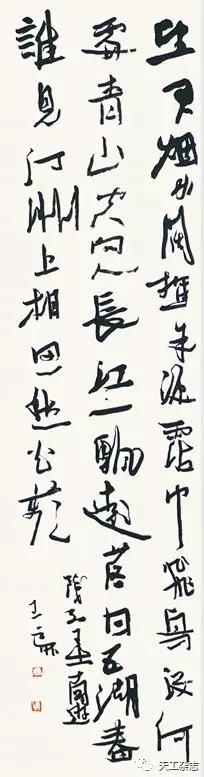 望君烟水闊揮手淚霑巾飛鳥沒何
處青山空向人長江一颿遠落日五湖春
誰見汀洲上相思愁白蘋
南遊
天工杂志